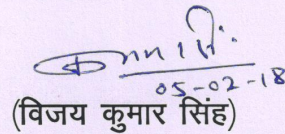 05-02-18
(विजय कुमार सिंह)